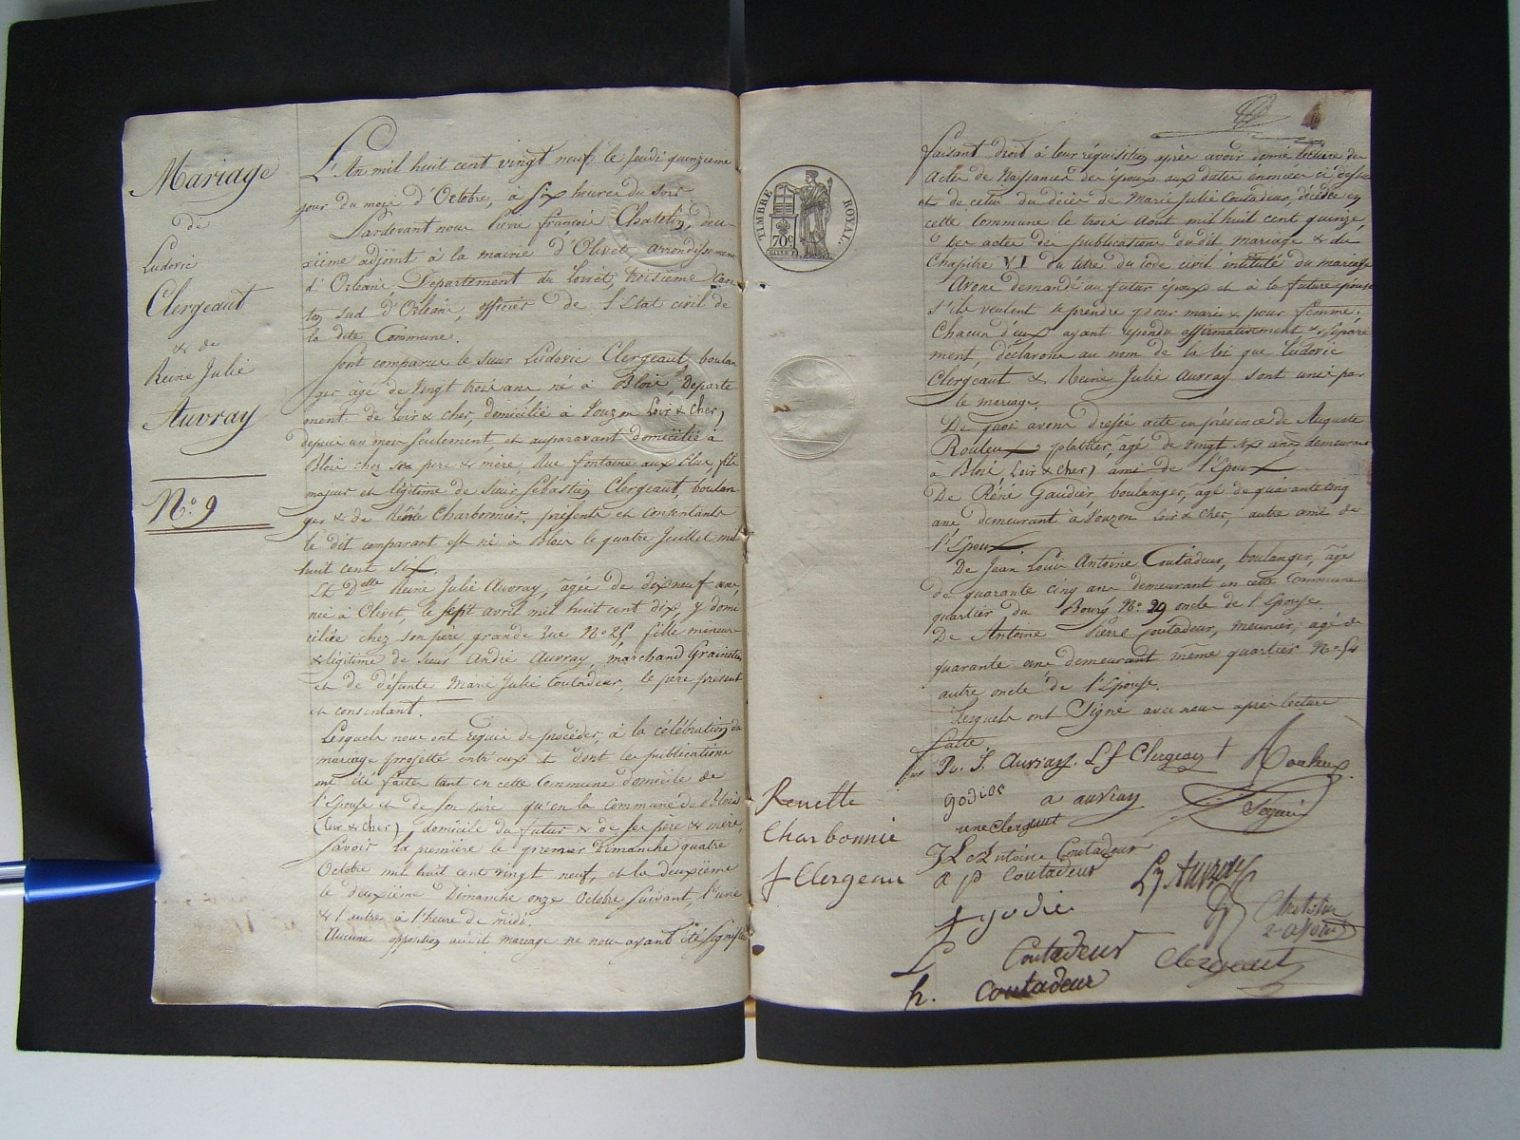 Mariage
de
Ludovic
Clergeaut
& de
Reine Julie
Auvray
N.o 9
L'An mil huit cent vingt neuf le Jeudi quinzieme
jour du mois d'Octobre, à six heures du soir
Pardevant nous Pierre françois Chatelin, deu-
xième adjoint à la mairie d'Olivet, arrondissement
d'Orléans Departement du Loiret, troisieme can-
ton sud d'Orléans, officier de l'Etat civil de
la dite Commune.
Sont comparus le sieur Ludovic Clergeaut, boulan-
ger âgé de vingt trois ans né à Blois, Departe
ment de Loir & cher, domicilié à Vouzon Loir & Cher,
depuis un mois seulement, et auparavant domicilié à
Blois chez ses pere & mère, Rue fontaine aux Elus, fils
majeur et légitime de sieur Sébastien Clergeaut, boulan
ger & de Renée Charbonnier, présents et consentants
le dit comparant est né à Blois le quatre Juillet mil
huit cent six.
Et Delle Reine Julie Auvray, âgée de dixneuf ans,
née à Olivet, le sept avril mil huit cent dix, y domi
ciliée chez son père grande rue No 25 fille mineure
& légitime de sieur André Auvray, marchand Grainetier
et de défunte Marie Julie Coutadeur, le père présent
et consentant.
Lesquels nous ont requis de procéder à la célébration du
mariage projetté entr'eux & dont les publications
ont été faites tant en cette Commune domicile de
l'Epouse et de son père qu'en la Commune de Blois
(Loir & Cher), domicile du futur & de ses père & mère,
savoir la première le premier Dimanche quatre
Octobre mil huit cent vingt neuf, et la deuxième
le deuxième Dimanche onze Octobre suivant, l'une
& l'autre à l'heure de midi.
Aucune opposition au dit mariage ne nous ayant été signifiée
TIMBRE ROYAL.
70c
faisant droit à leur réquisition après avoir donné lecture des
Actes de Naissances des époux aux dates énoncées ci dessus
et de celui du décès de Marie Julie Coutadeur, décédée en
cette commune le trois Aout mil huit cent quinze,
des actes des publications dudit mariage & du
Chapitre VI du titre du code civil intitulé du mariage
Avons demandé au futur époux et à la future épouse
s'ils veulent se prendre pour mari & pour femme.
Chacun d'eux ayant répondu affirmativement & séparé
ment, déclarons au nom de la loi que Ludovic
Clergeaut & Reine Julie Auvray sont unis par
le mariage.
De quoi avons dressé acte en présence de Auguste
Rouleux, platrier, âgé de vingt six ans, demeurant
à Blois, Loir & cher, ami de l'Epoux
De Réné Gaudier, boulanger, âgé de quarante cinq
ans, demeurant à Vouzon Loir & Cher, autre ami de
l'Epoux
De Jean Louis Antoine Coutadeur, boulanger, âgé
de quarante cinq ans demeurant en cette commune
quartier du Bourg No. 29 oncle de l'Epouse.
De Antoine Pierre Coutadeur, meunier, agé de
quarante ans demeurant même quartier No. 54
autre oncle de l'Epouse.
Lesquels ont signé avec nous après lecture
faite
R. J. Auvray. L S Clergeau
Rouleux
godier
a auvray
Clergeaut
J L Antoine Coutadeur
a p Coutadeur
Renette
Charbonnié
f Clergeau
Auvray
f godie
Chatelin
2e adjoint
Coutadeur
Clergeaut
h. Coutadeur